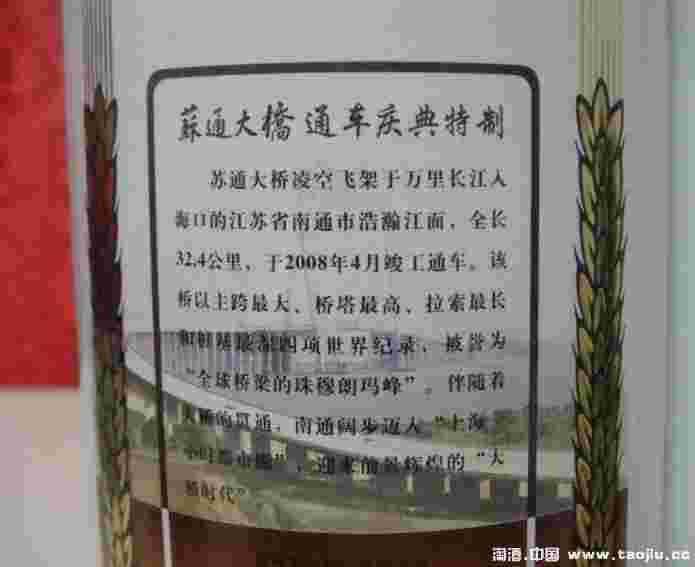 蘇通大橋 通车庆典特制
苏通大桥凌空飞架于万里长江入
海口的江苏省南通市浩瀚江面，全长
32.4公里，于2008年4月竣工通车。该
桥以主跨最大、桥塔最高、拉索最长
和群基最深四项世界纪录，被誉为
“全球桥梁的珠穆朗玛峰”。伴随着
大桥的贯通，南通阔步迈入“上海一
小时都市圈”，迎来前景辉煌的“大
桥时代”
淘酒.中国 www.taojiu.cc